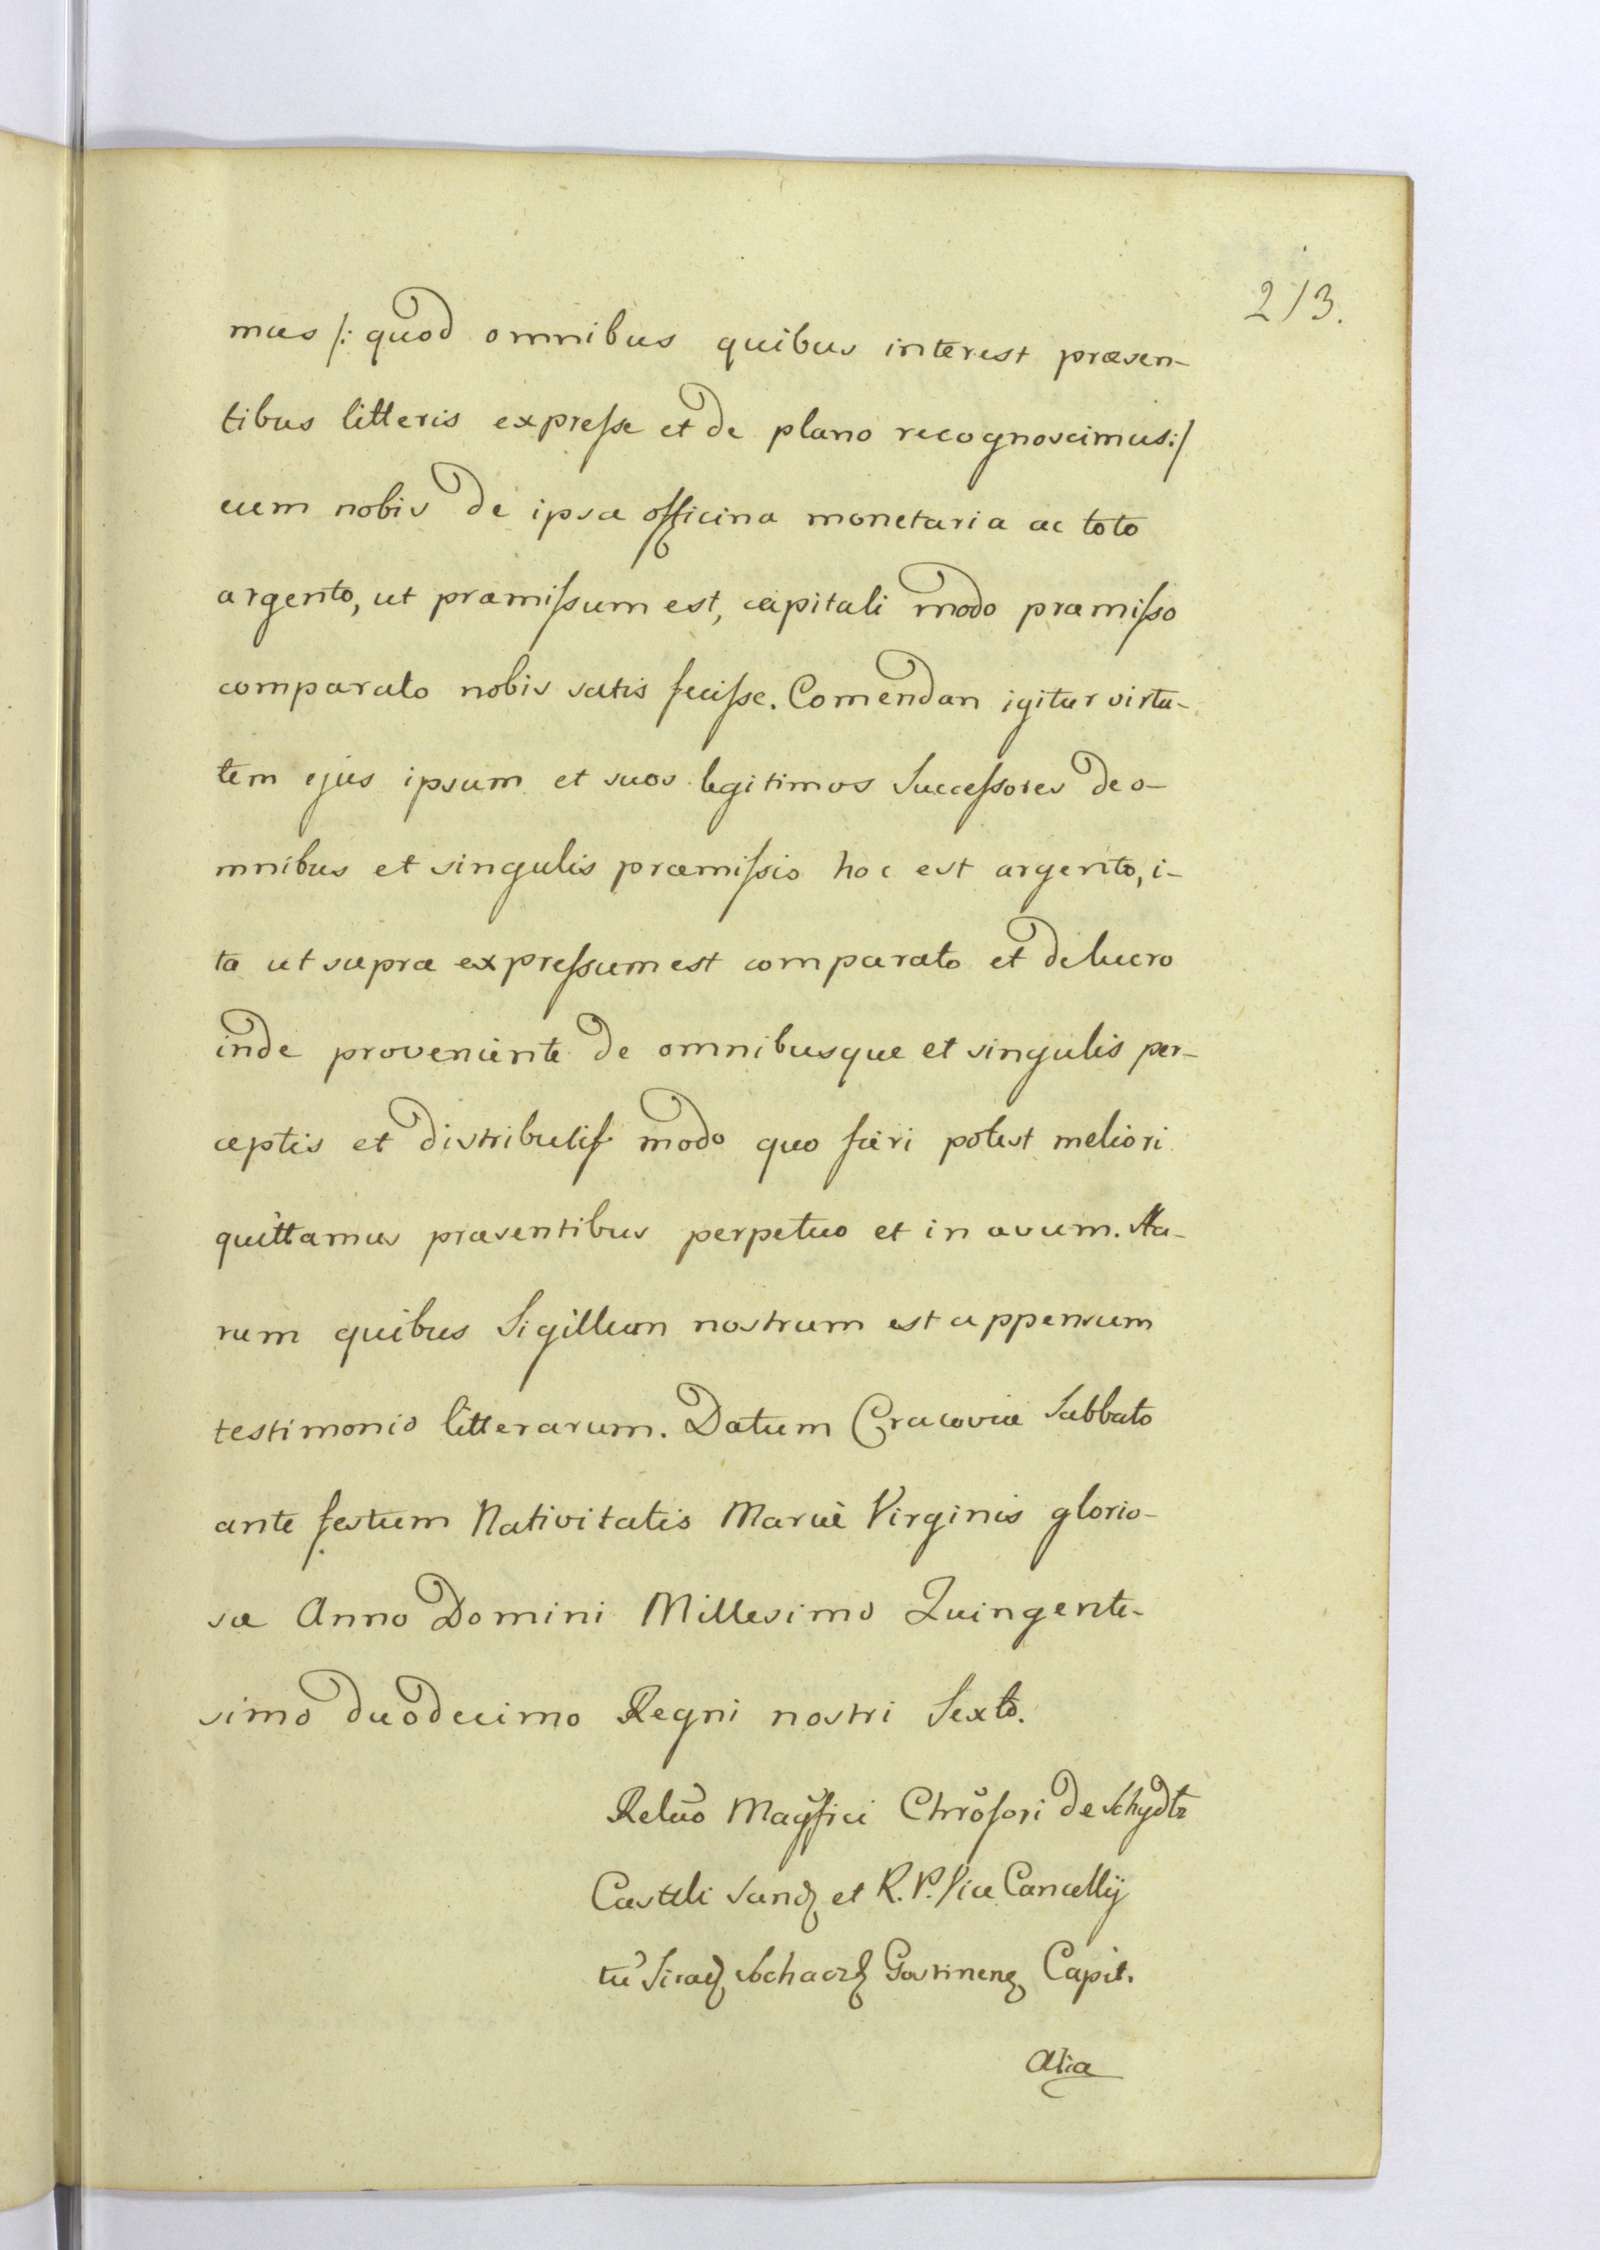 213.
mus /: quod omnibus quibus interest præsen-
tibus litteris expresse et de plano recognoscimus :/
eum nobis de ipsa officina monetaria ac toto
argento, ut præmissum est, capitali modo præmisso
comparato nobis satis fecisse. Comendan igitur virtu-
tem ejus ipsum et suos legitimos Successores de o-
mnibus et singulis præmissis hoc est argento, i-
ta ut supra expressum est comparato et de lucro
inde proveniente de omnibusque et singulis per-
ceptis et distributis modo quo fieri potest meliori
quittamus præsentibus perpetuo et in ævum. Ha-
rum quibus Sigillum nostrum est appensum
testimonio litterarum. Datum Cracoviæ Sabbato
ante festum Nativitatis Mariæ Virginis glorio-
sæ Anno Domini Millesimo Quingente-
simo duodecimo Regni nostri Sexto.
Relu͠o Magͥfici Chrōfori de Schydł
Castelli Sand et R. P. Vice Cancellij
tu Sirad Sochacz Gostinen Capit.
Alia